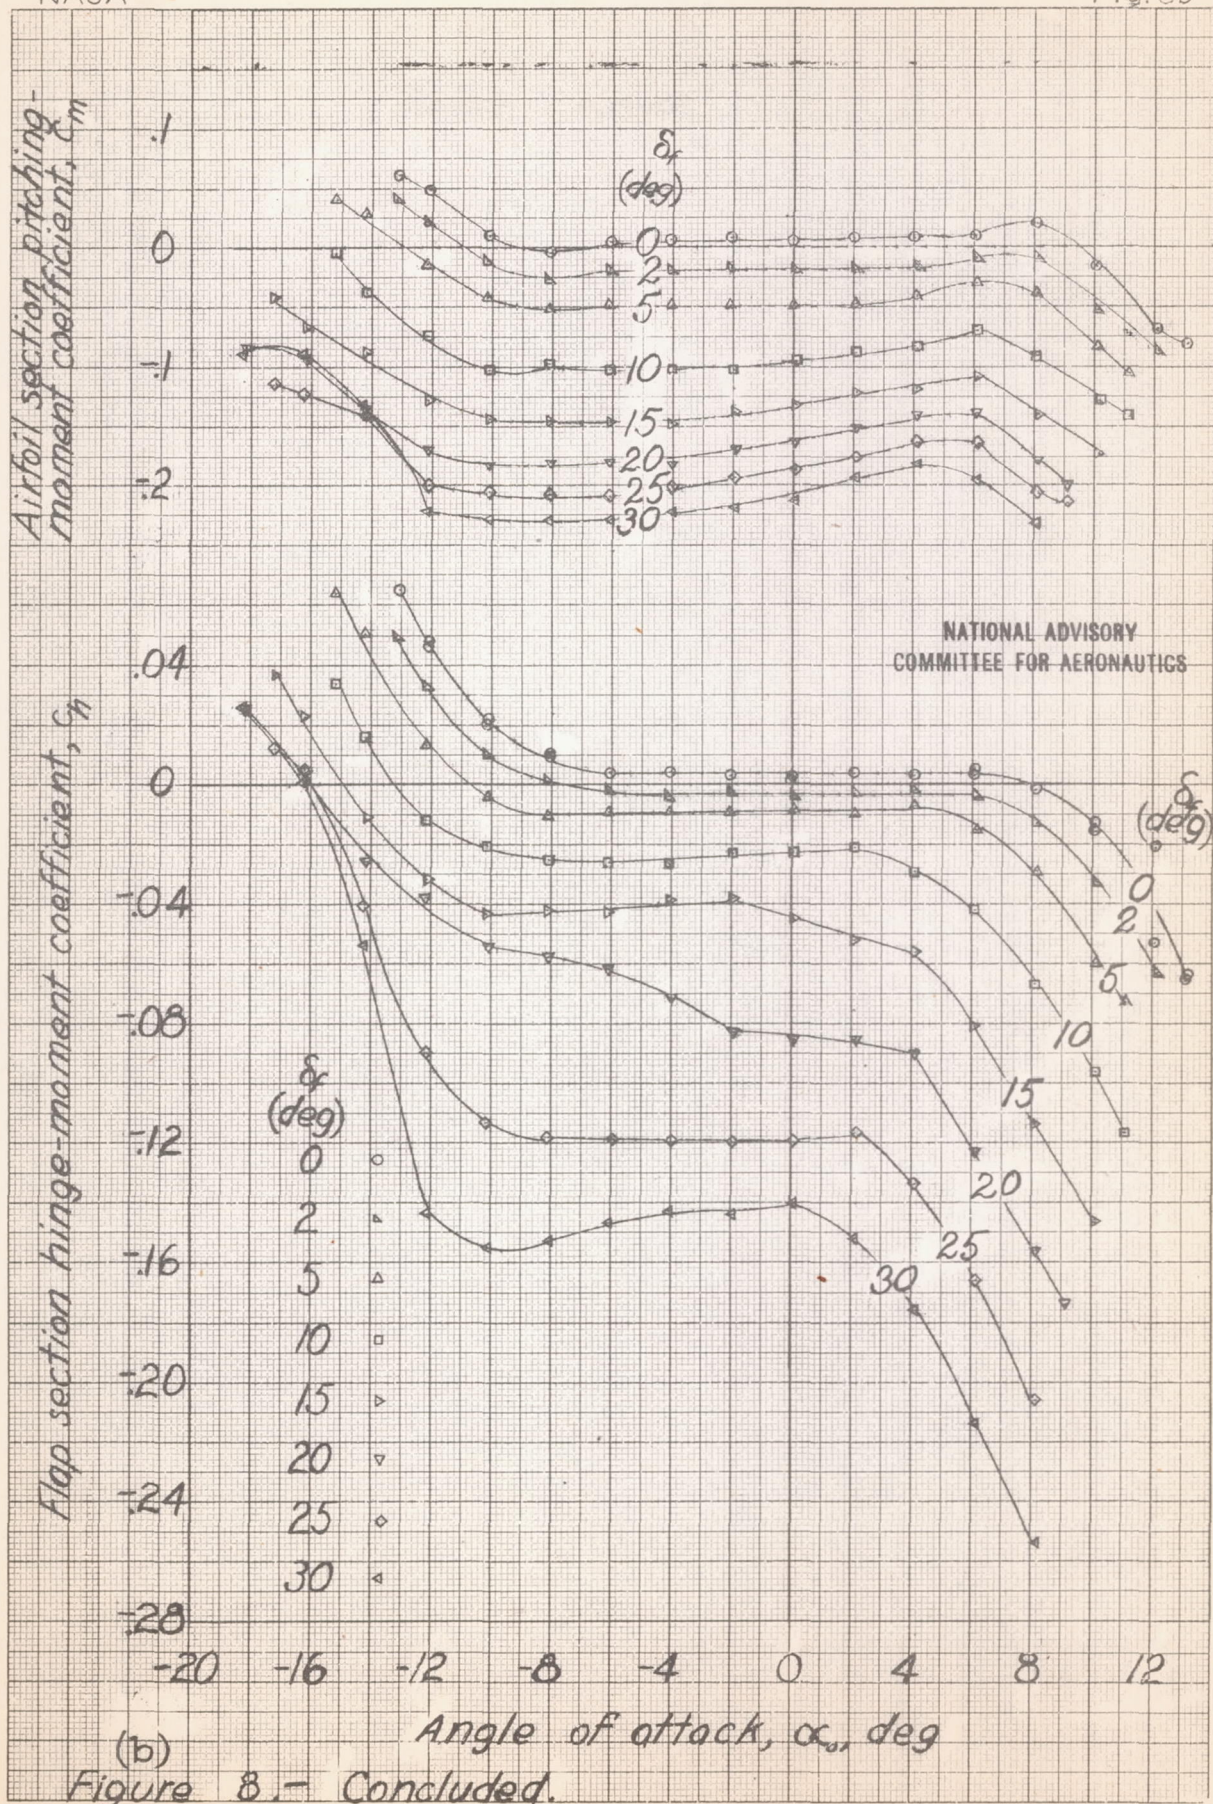 Airfoil section pitching-
moment coefficient, cm
.1
0
-.1
-.2
δf
(deg)
0
2
5
10
15
20
25
30
NATIONAL ADVISORY
COMMITTEE FOR AERONAUTICS
Flap section hinge-moment coefficient, ch
.04
0
-.04
-.08
-.12
-.16
-.20
-.24
-.28
δf
(deg)
0
2
5
10
15
20
25
30
δf
(deg)
0
2
5
10
15
20
25
30
-20 -16 -12 -8 -4 0 4 8 12
Angle of attack, α₀, deg
(b)
Figure 8.- Concluded.